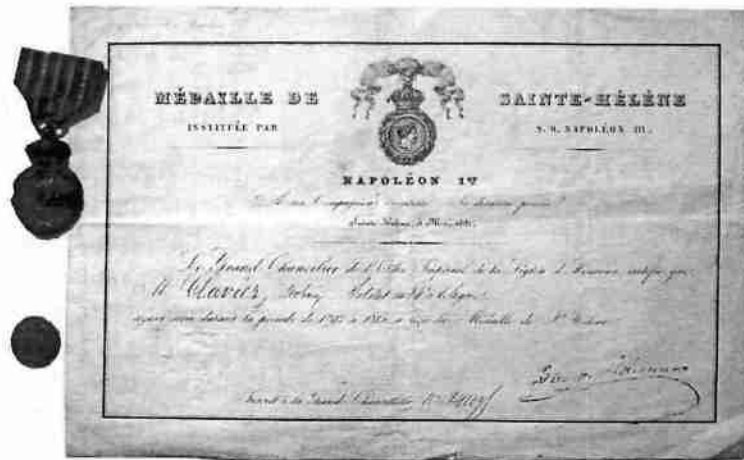 MÉDAILLE DE SAINTE-HÉLÈNE
INSTITUÉE PAR S. M. NAPOLÉON III.
NAPOLÉON 1er
A ses Compagnons de sa dernière pensée
Sainte Hélène, 5 Mai, 1821
Le Grand Chancelier de l'Ordre Impérial de la Légion d'Honneur, certifie que
Mr Clavier, Soldat au de Ligne
ayant servi durant la période de 1792 à 1815, a reçu la Médaille de Ste Hélène
Inscrit à la Grande Chancellerie No